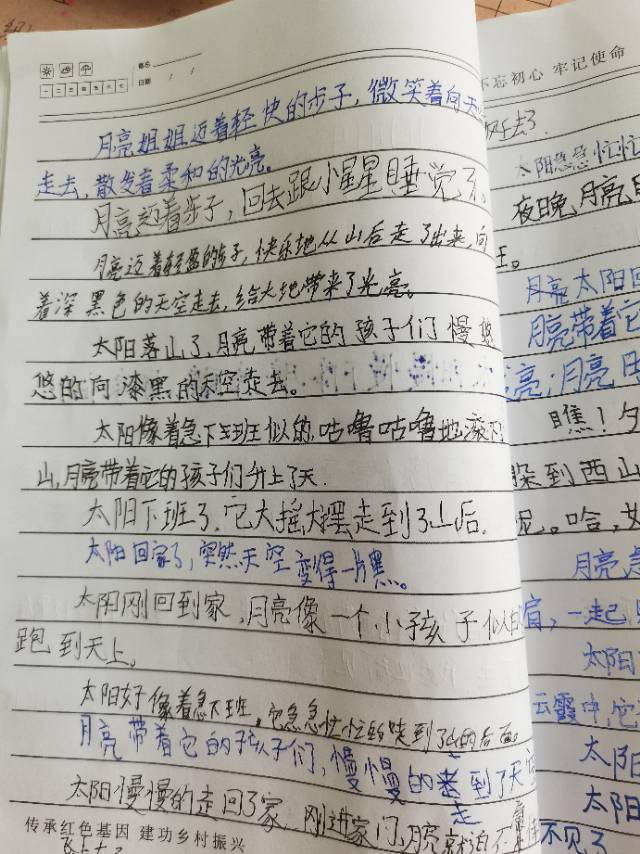 不忘初心 牢记使命
一二三四五六七
日期 / /
月亮姐姐迈着轻快的步子，微笑着向天
走去，散发着柔和的光亮。
月亮迈着步子，回去跟小星星睡觉了。
月亮迈着轻盈的步子，快乐地从山后走了出来，向
着深黑色的天空走去，给大地带来了光亮。
太阳落山了，月亮带着它的孩子们慢悠
悠的向漆黑的天空走去。
太阳像着急下班似的咕噜咕噜地滚下
山，月亮带着它的孩子们升上了天.
太阳下班了，它大摇大摆走到了山后.
太阳回家了，突然天空变得一片黑。
太阳刚回到家，月亮像一个小孩子似的
跑到天上。
太阳好像着急下班，它急急忙忙的走到了山的后面。
月亮带着它的孩子们，慢慢的走到了天
太阳慢慢的走回了家，刚进家门，月亮就迫不
传承红色基因 建功乡村振兴
太阳急急忙忙
夜晚，月亮
王。
月亮太阳回
月亮带着它
亮，月亮
瞧！夕
躲到西山
呢。哈，
月亮急
肩，一起
太阳
云霞中，它
太阳
太阳
不见了